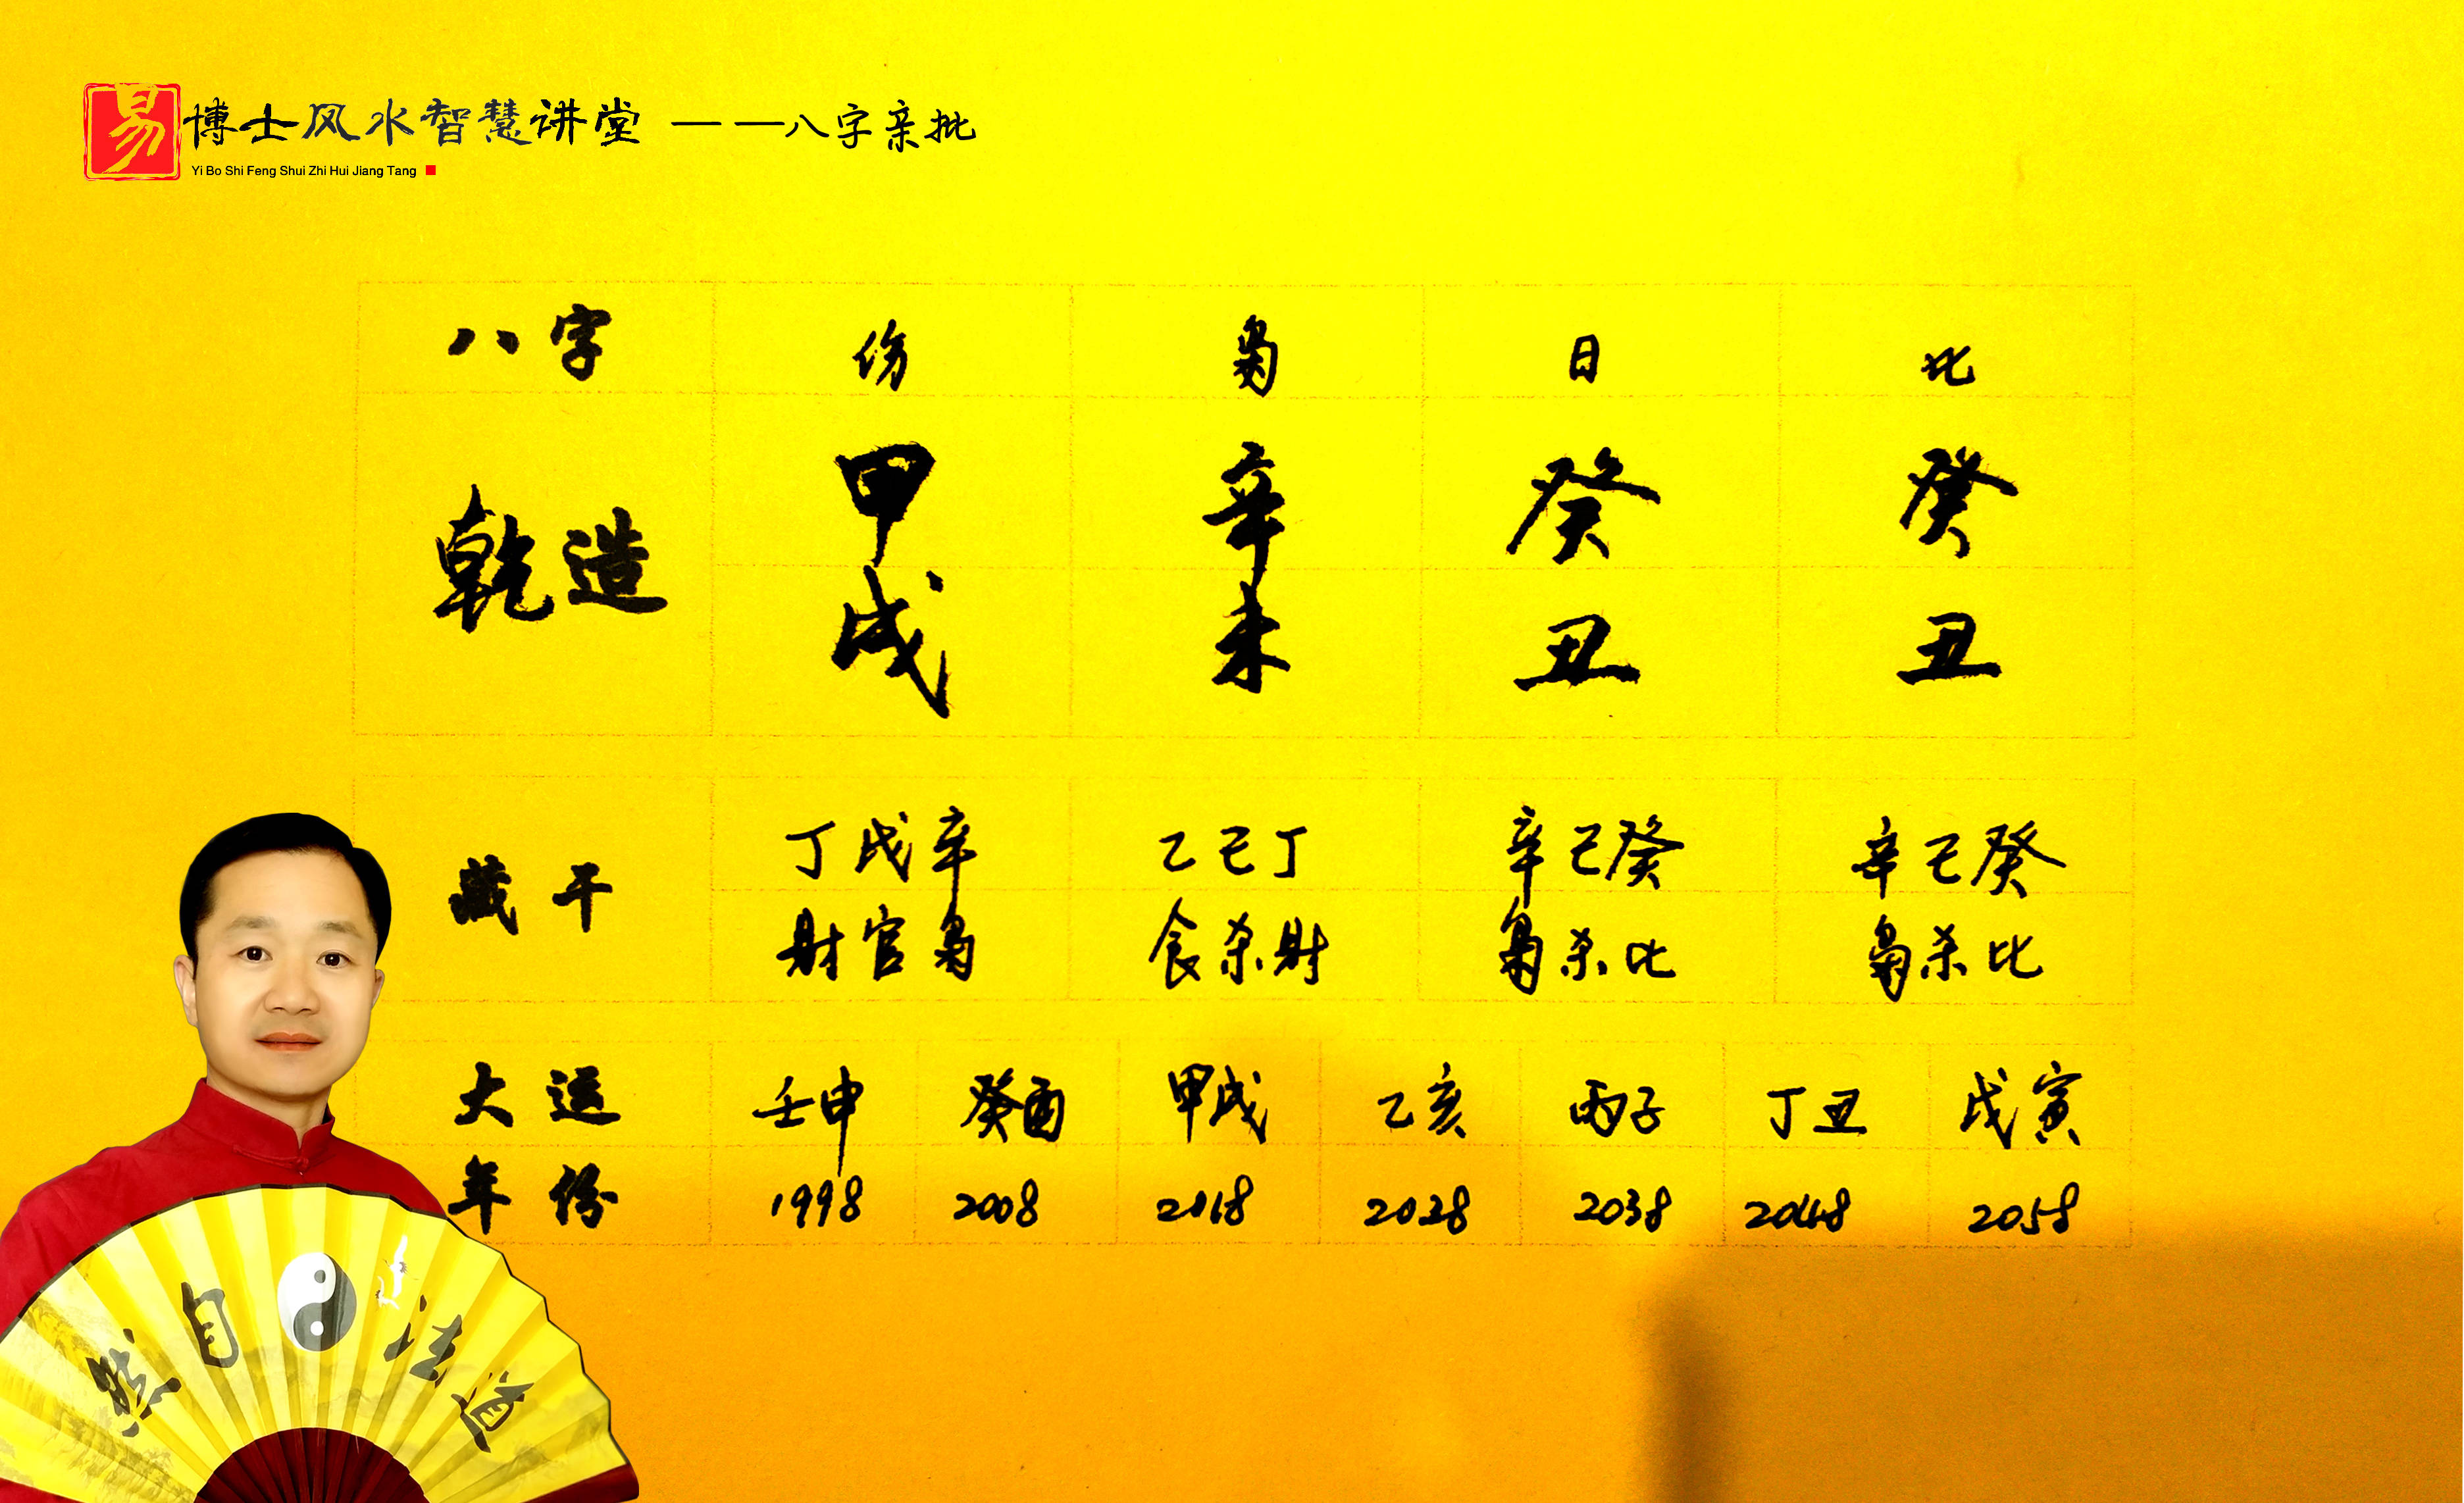 易博士风水智慧讲堂 ——八字亲批
Yi Bo Shi Feng Shui Zhi Hui Jiang Tang
八字 伤 枭 日 比
乾造 甲 辛 癸 癸
戌 未 丑 丑
藏干 丁戊辛 乙己丁 辛己癸 辛己癸
财官枭 食杀财 枭杀比 枭杀比
大运 壬申 癸酉 甲戌 乙亥 丙子 丁丑 戊寅
年份 1998 2008 2018 2028 2038 2048 2058
道法自然